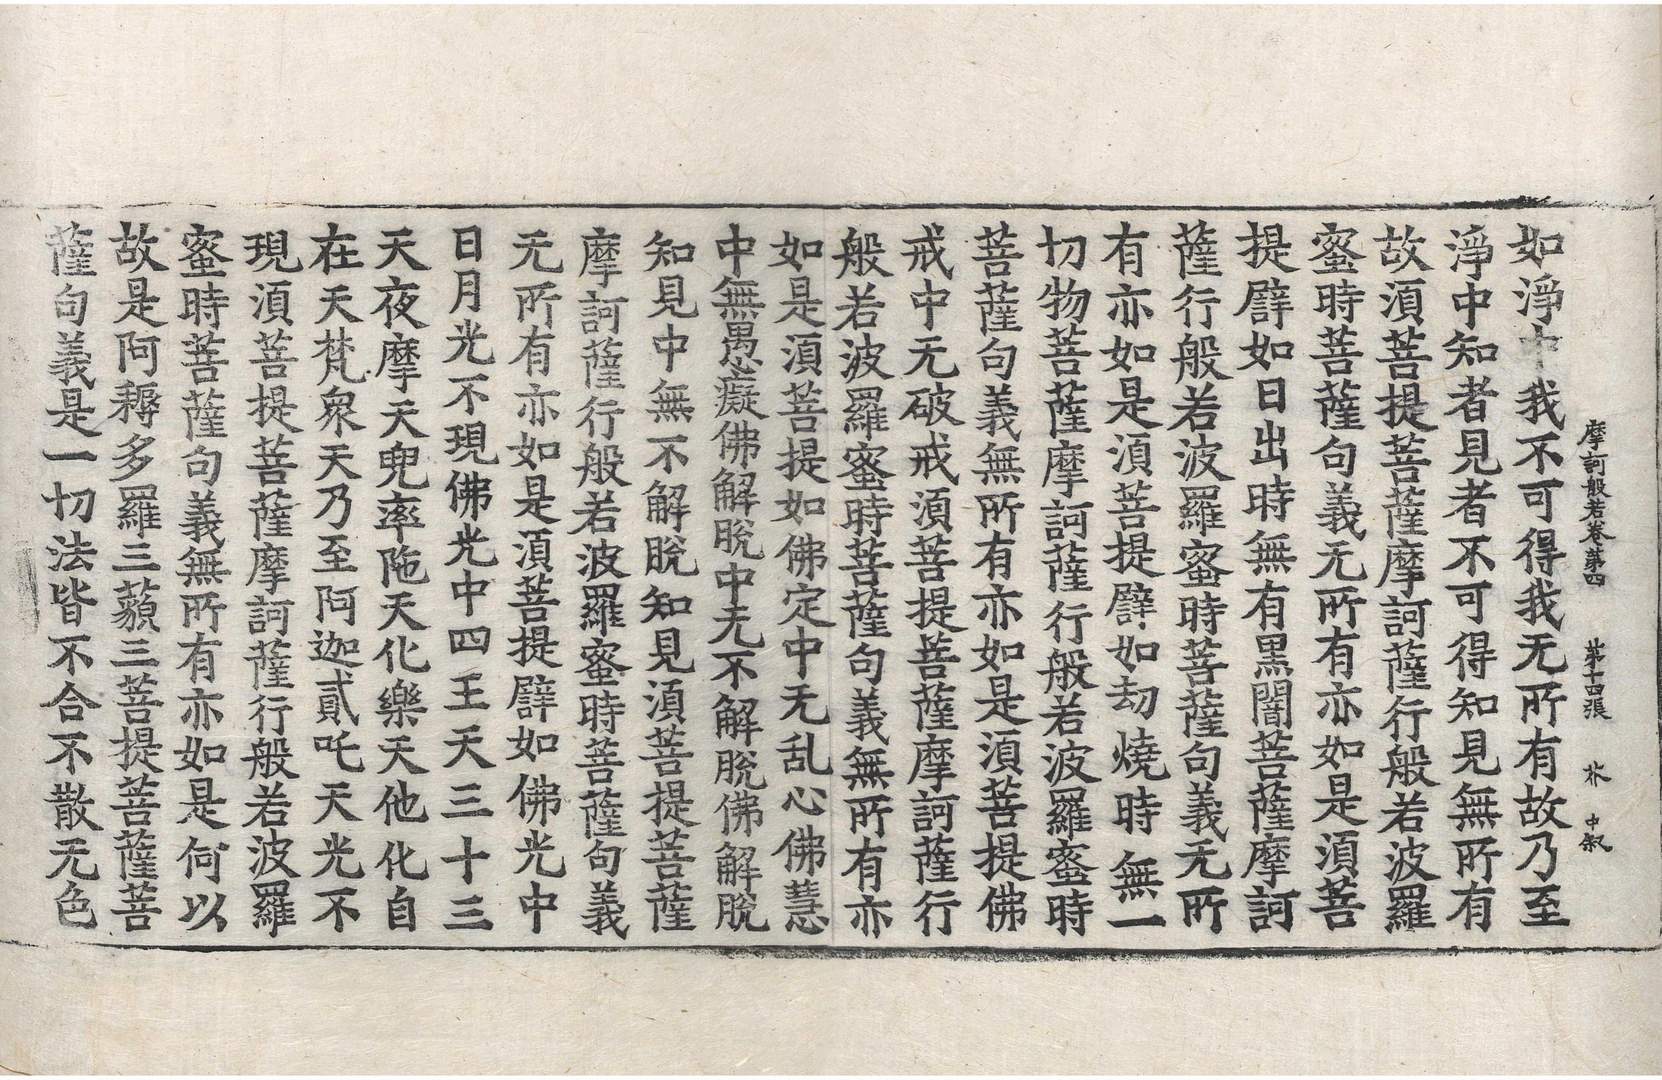 摩訶般若卷第四　第十四張　中叙
如淨中我不可得我无所有故乃至
淨中知者見者不可得知見無所有
故須菩提菩薩摩訶薩行般若波羅
蜜時菩薩句義无所有亦如是須菩
提譬如日出時無有黑闇菩薩摩訶
薩行般若波羅蜜時菩薩句義无所
有亦如是須菩提譬如劫燒時無一
切物菩薩摩訶薩行般若波羅蜜時
菩薩句義無所有亦如是須菩提佛
戒中无破戒須菩提菩薩摩訶薩行
般若波羅蜜時菩薩句義無所有亦
如是須菩提如佛定中无乱心佛慧
中無愚癡佛解脫中无不解脫佛解脫
知見中無不解脫知見須菩提菩薩
摩訶薩行般若波羅蜜時菩薩句義
无所有亦如是須菩提譬如佛光中
日月光不現佛光中四王天三十三
天夜摩天兜率陁天化樂天他化自
在天梵衆天乃至阿迦貳吒天光不
現須菩提菩薩摩訶薩行般若波羅
蜜時菩薩句義無所有亦如是何以
故是阿耨多羅三藐三菩提菩薩菩
薩句義是一切法皆不合不散无色